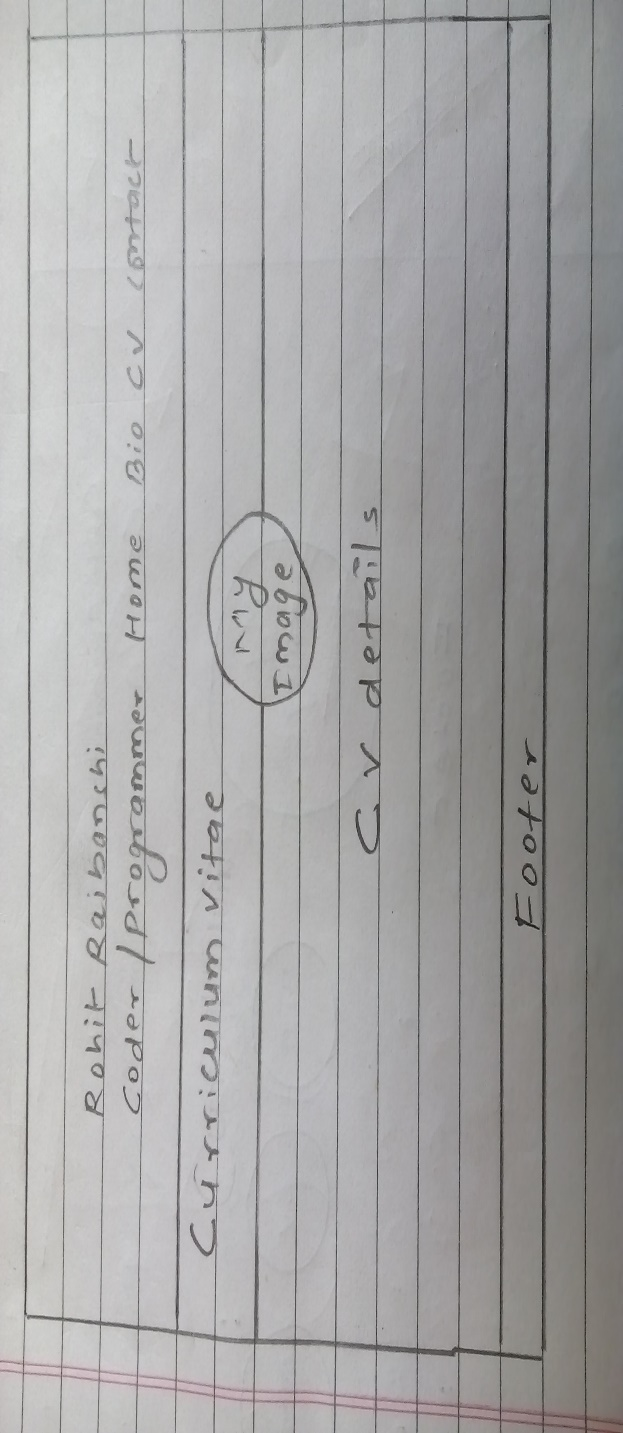 Rohit Raibanchi
Coder/programmer Home Bio CV contact
Curriculum vitae
My
Image
CV details
Footer